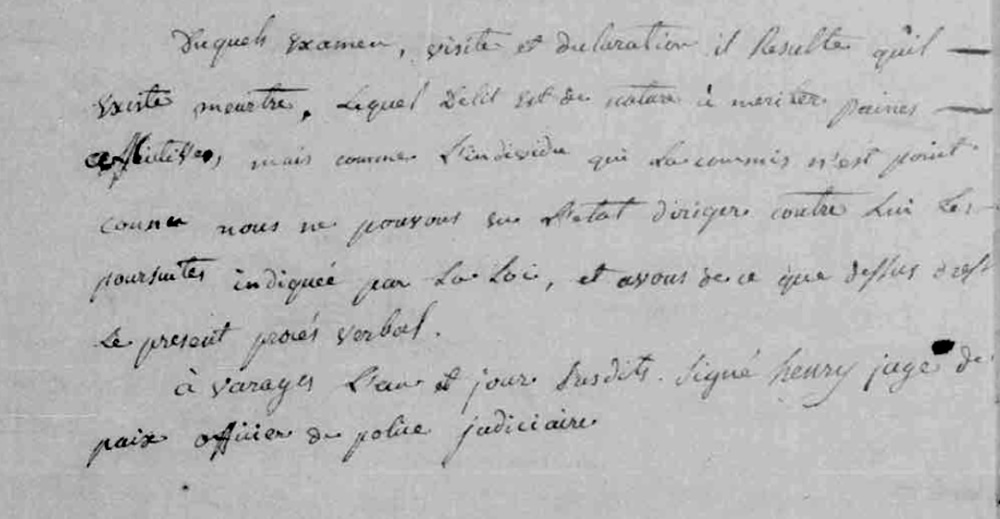 Duquels Examen, visite et declaration il Resulte qu'il
Existe meurtre, Lequel Delit Est de nature à meriter paines
afflictives, mais comme L'individu qui La commis n'est point
connu nous ne pouvons en L'etat diriger contre Lui Les
poursuites indiquée par La Loi, et avons de ce que dessus dress
Le present procés verbal.
à Varages L'an et jour Susdits. Signé henry juge de
paix officier de police judiciaire